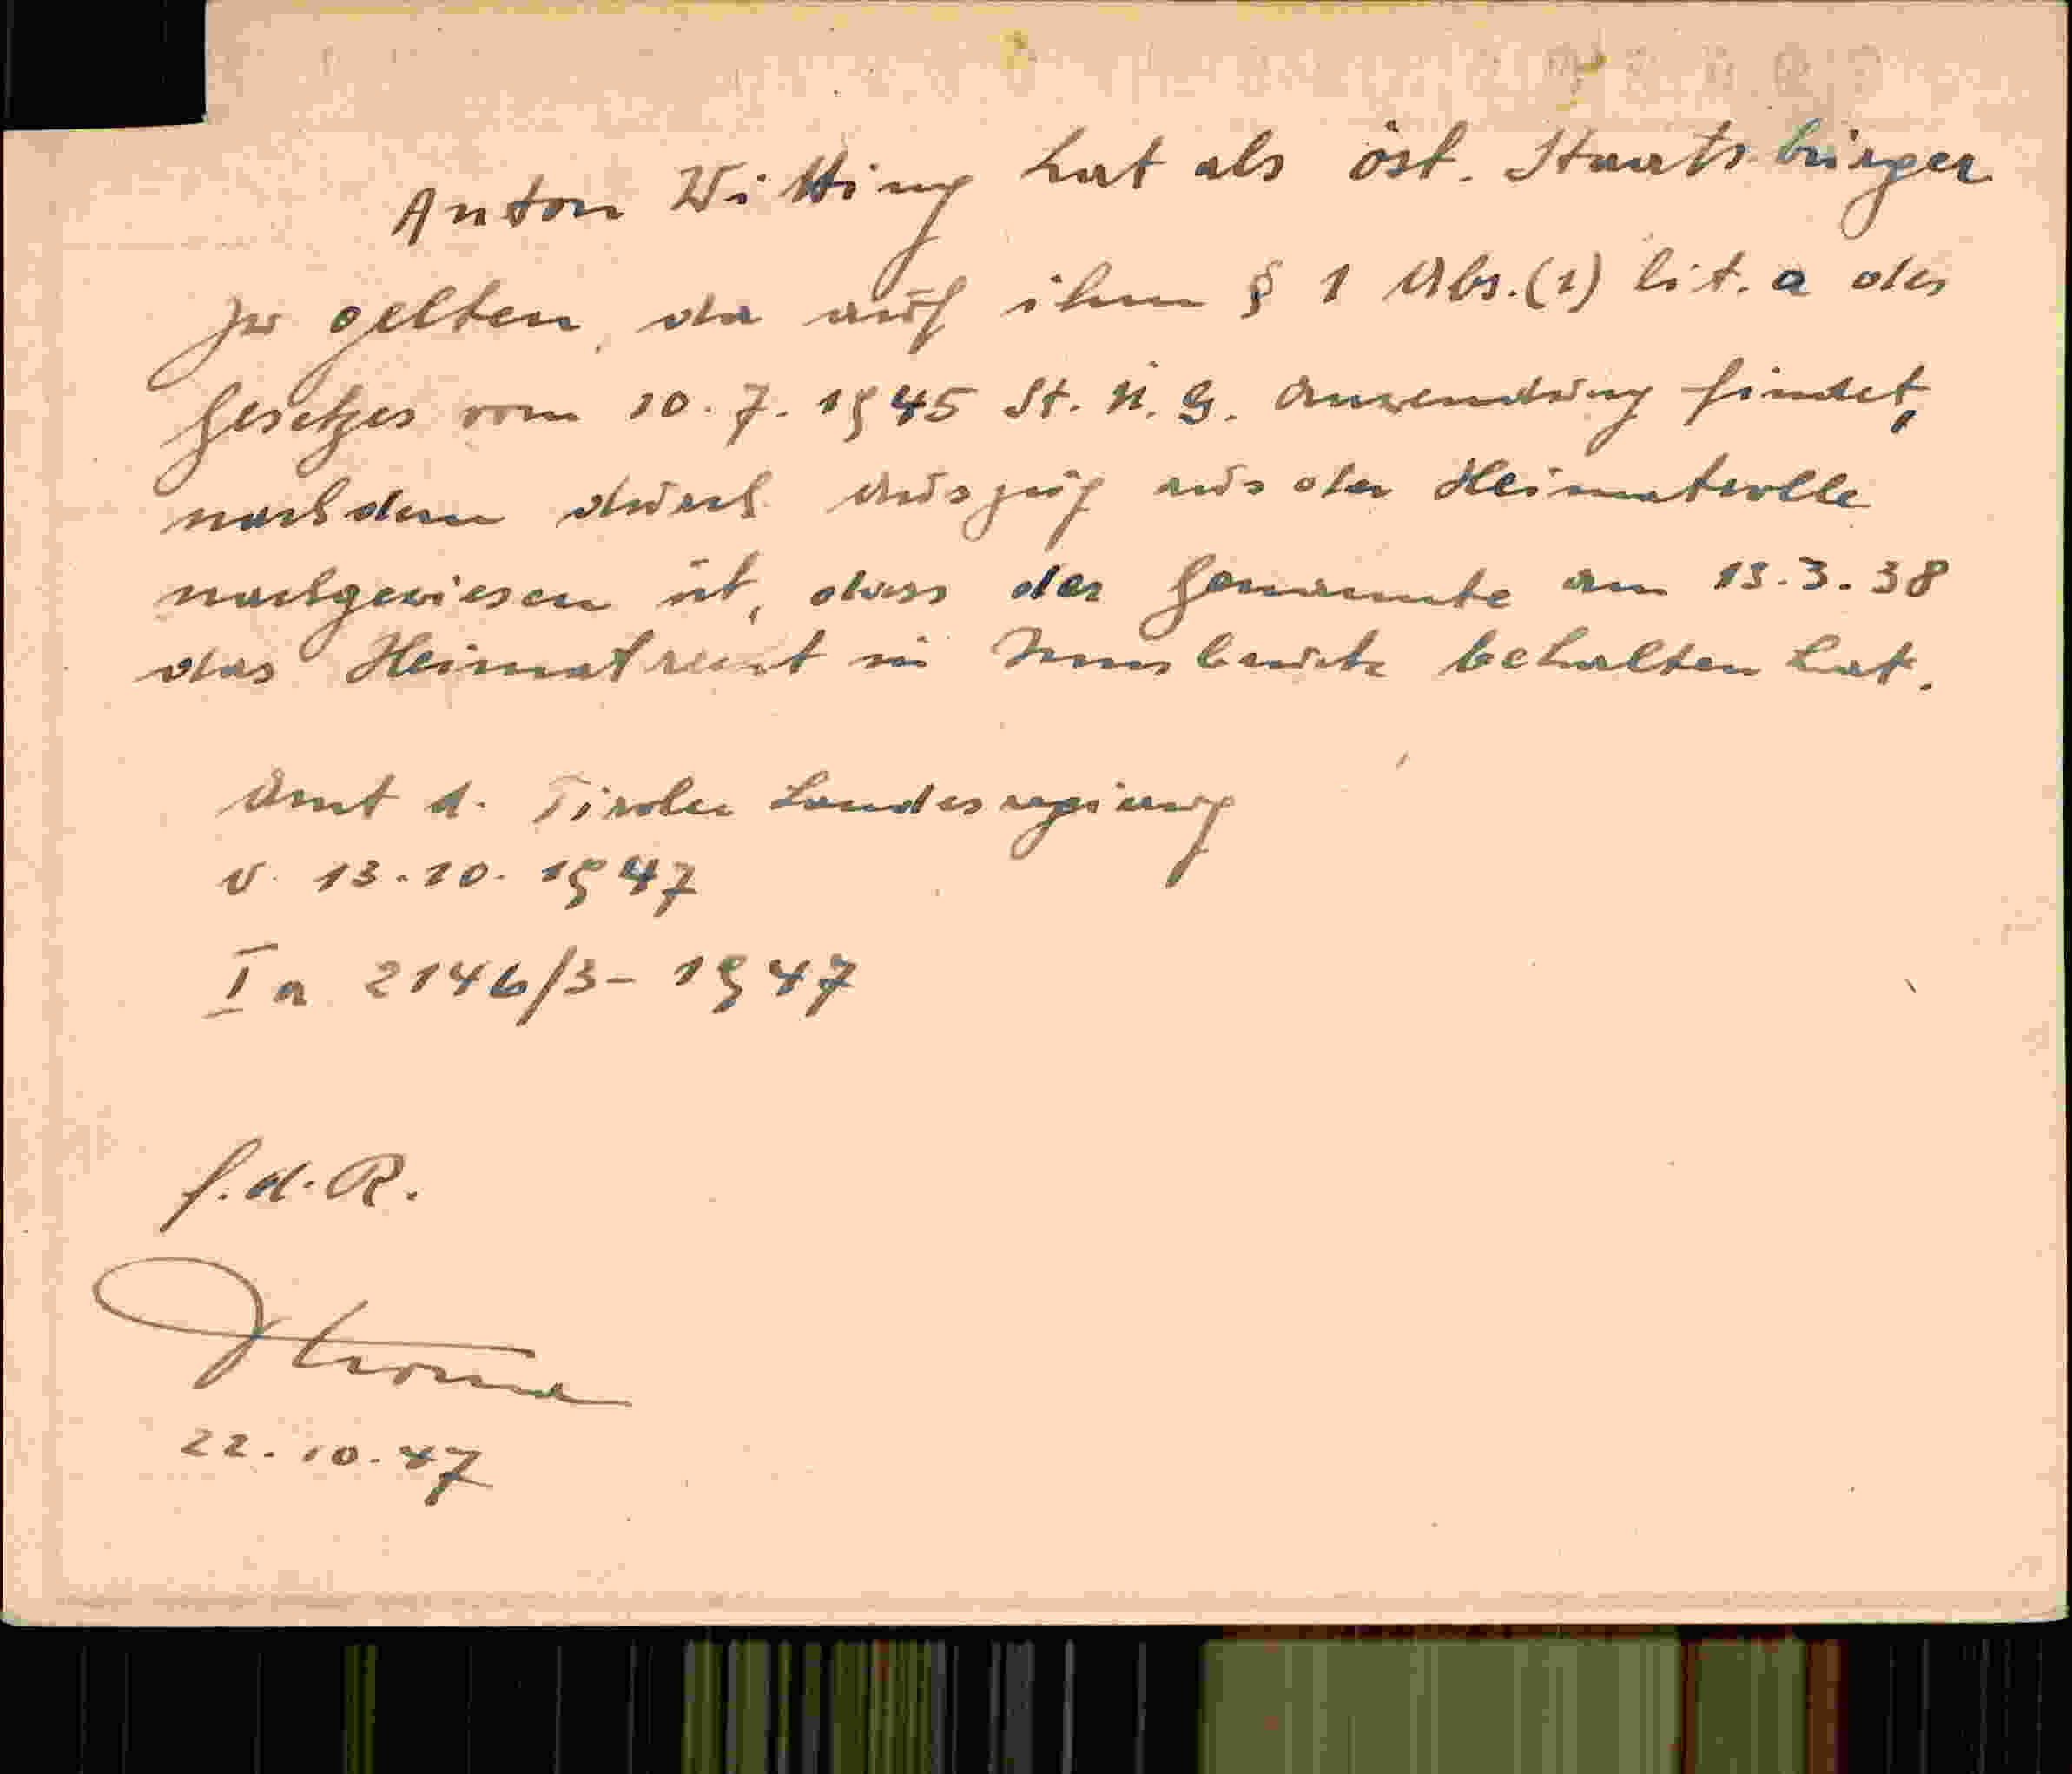 Anton Witting hat als öst. Staatsbürger
zu gelten, da auf ihm § 1 Abs. (1) lit. a des
Gesetzes vom 10. 7. 1945 St. Ü. G. Anwendung findet,
nachdem durch Auszug aus der Heimatrolle
nachgewiesen ist, dass der Genannte am 13.3.38
das Heimatrecht in Innsbruck behalten hat.
Amt d. Tiroler Landesregierung
v. 13.10.1947
Ia 2146/3-1947
f.d.R.
22.10.47